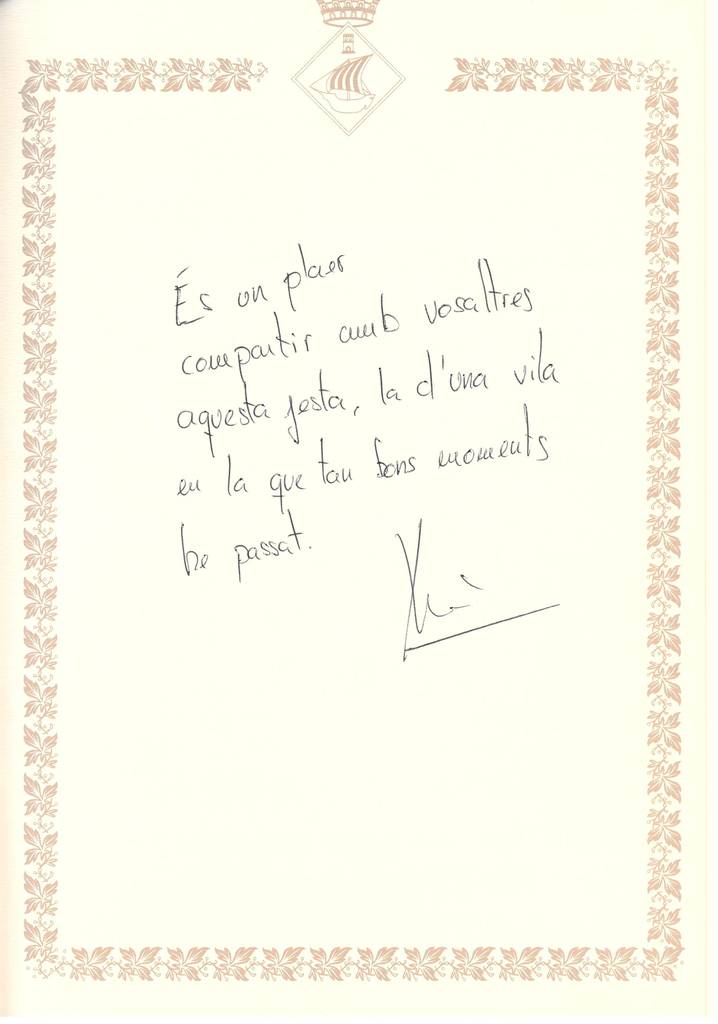 És un plaer
compartir amb vosaltres
aquesta festa, la d'una vila
en la que tan bons moments
he passat.